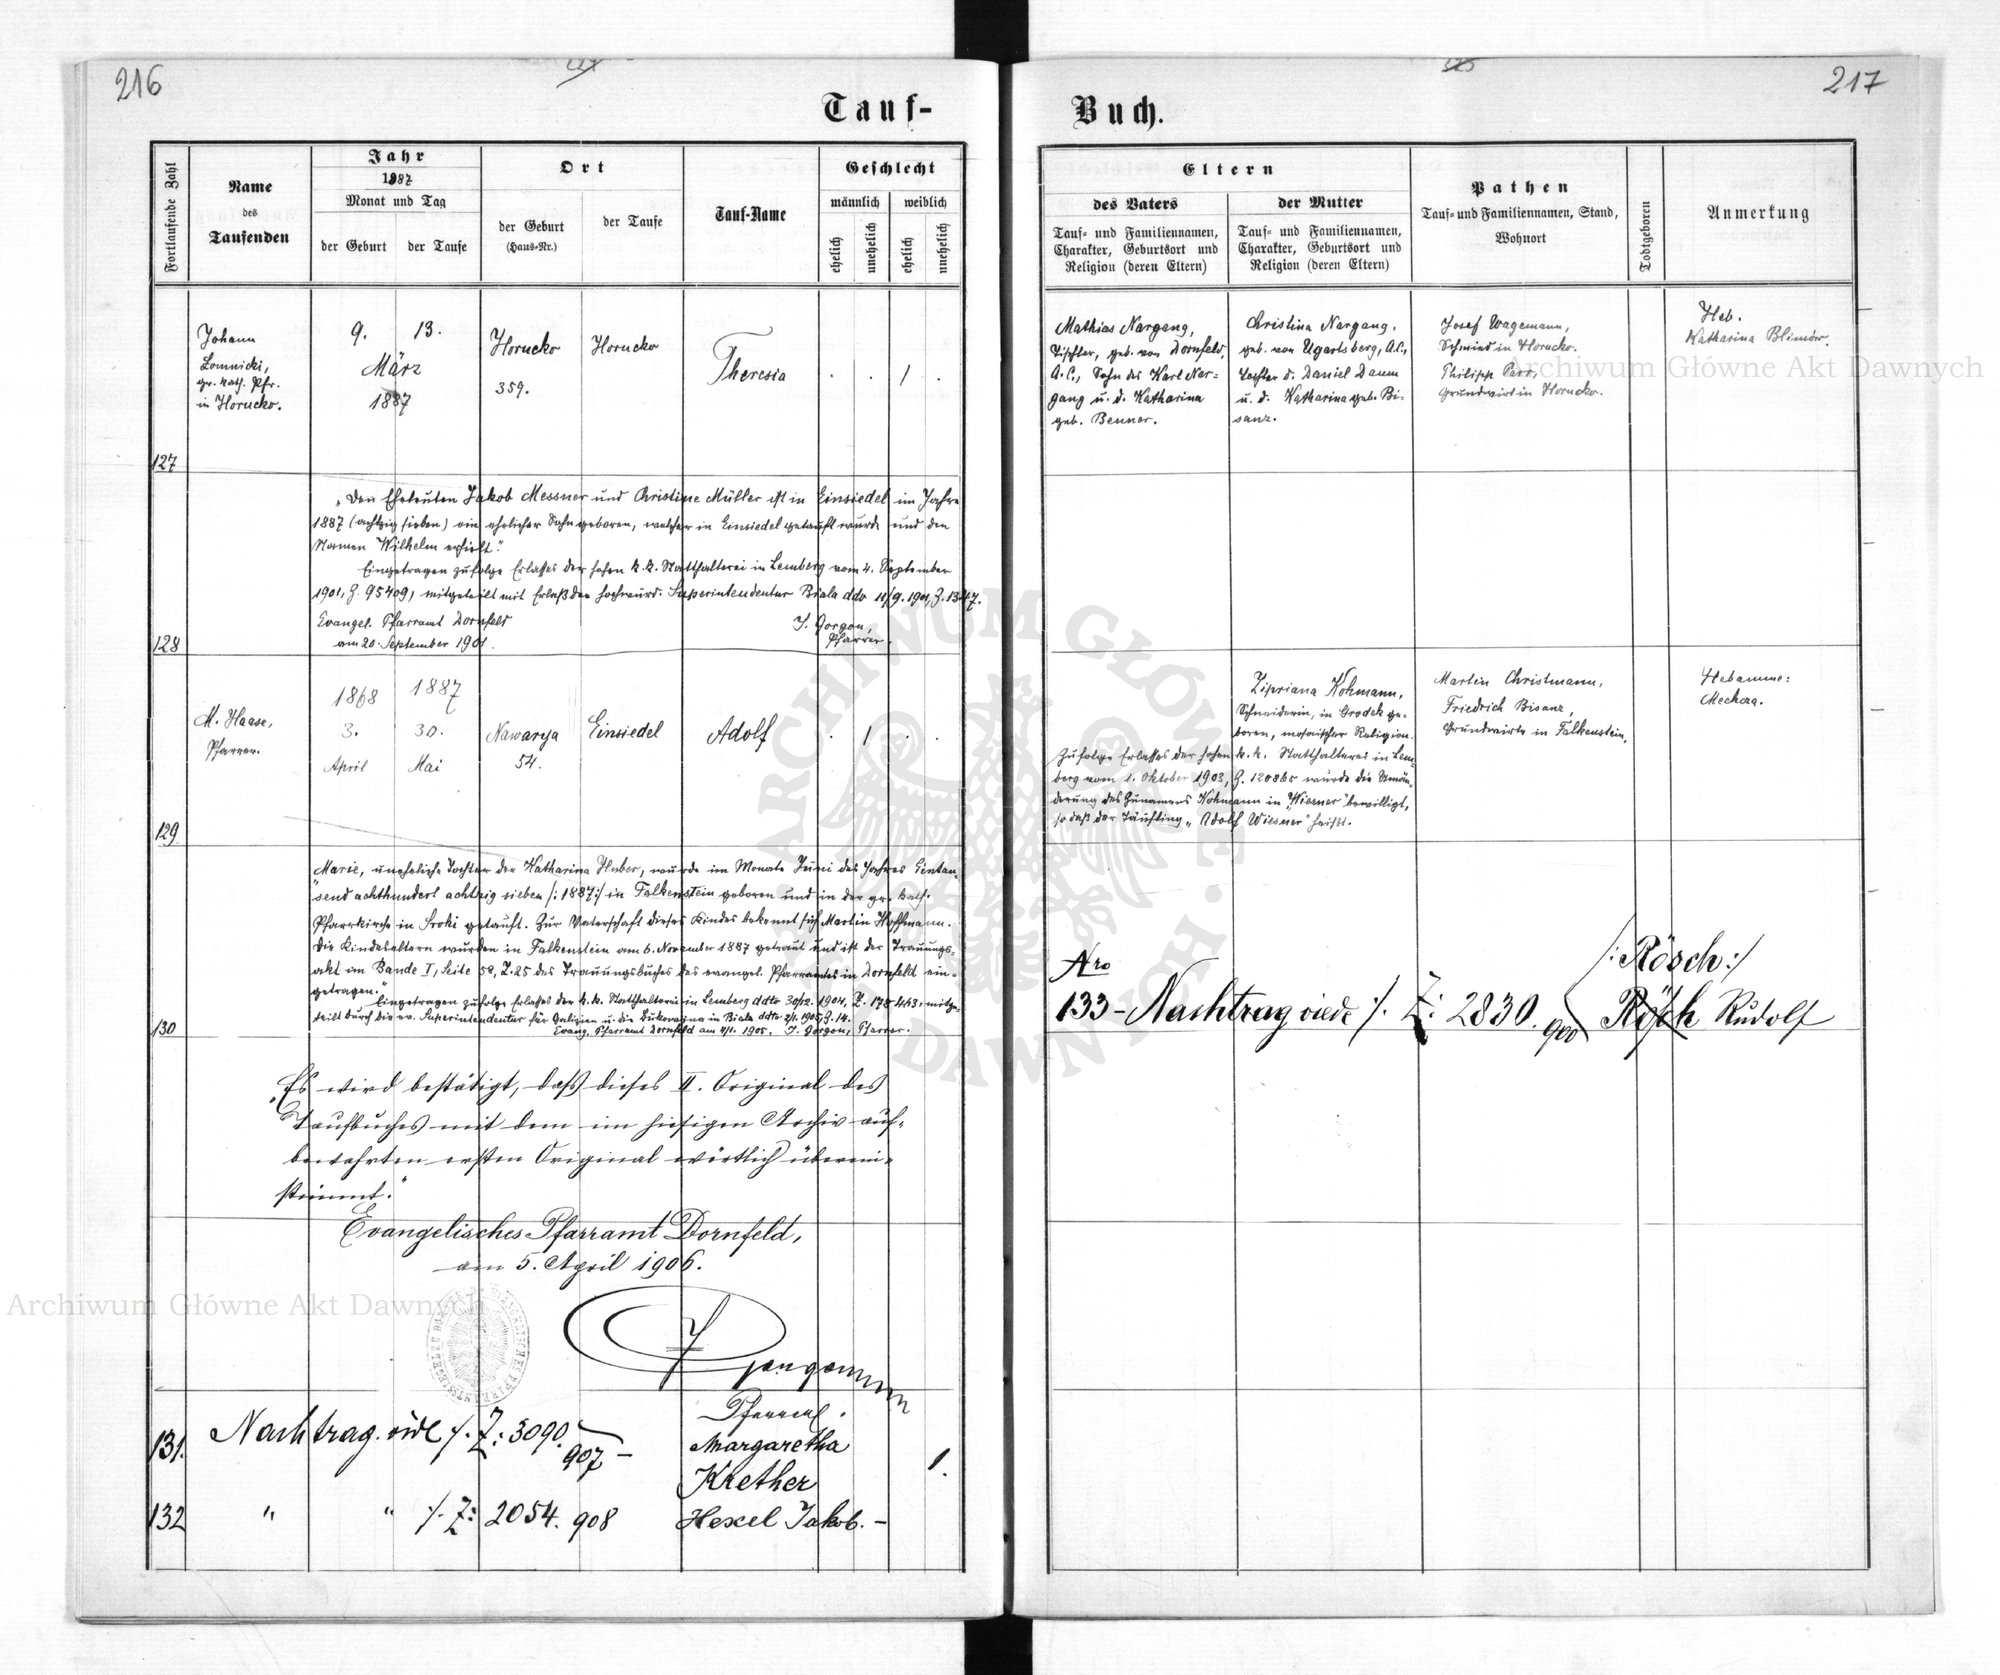 216
Tauf-
Fortlaufende Zahl
Name
des
Taufenden
Jahr
1887
Monat und Tag
der Geburt
der Taufe
Ort
der Geburt
(Haus-Nr.)
der Taufe
Tauf-Name
Geschlecht
männlich
weiblich
ehelich
unehelich
ehelich
unehelich
127
Johann
Lomnicki,
gr. kath. Pfr.
in Horucko.
9. 13.
März
1887
Horucko
359.
Horucko
Theresia
. . 1 .
128
"Den Eheleuten Jakob Messner und Christine Müller ist in Einsiedel im Jahre
1887 (achtzig sieben) ein ehelicher Sohn geboren, welcher in Einsiedel getauft wurde und den
Namen Wilhelm erhielt."
Eingetragen zufolge Erlasses der hohen k. k. Statthalterei in Lemberg vom 4. September
1901, Z. 95409, mitgeteilt mit Erlaß der hochwürd. Superintendentur Biala ddo 11/9. 1901, Z.
Evangel. Pfarramt Dornfeld
am 20. September 1901.
J. Gorgon,
Pfarrer.
129
M. Haase,
Pfarrer.
1868
3.
April
1887
30.
Mai
Nawarya
54.
Einsiedel
Adolf
. 1 . .
130
"Marie, uneheliche Tochter der Katharina Huber, wurde im Monate Juni des Jahres Eintau-
send achthundert achtzig sieben /: 1887:/ in Falkenstein geboren und in der gr. kath.
Pfarrkirche in Sroki getauft. Zur Vaterschaft dieses Kindes bekennt sich Martin Hoffmann.
Die Kindeseltern wurden in Falkenstein am 6. November 1887 getraut und ist der Trauungs-
akt im Bande I, Seite 58, Z. 25 des Trauungsbuches des evangel. Pfarramtes in Dornfeld ein-
getragen."
Eingetragen zufolge Erlasses der k. k. Statthalterei in Lemberg ddto 30/12. 1904, Z. 178463, mitge-
teilt durch die ev. Superintendentur für Galizien u. die Bukowina in Biala ddto 2/1. 1905, Z. 14.
Evang. Pfarramt Dornfeld am 4/1. 1905. J. Gorgon, Pfarrer.
"Es wird bestätigt, daß dieses II. Original des
Taufbuches mit dem im hiesigen Archiv auf-
bewahrten ersten Original wörtlich überein-
stimmt."
Evangelisches Pfarramt Dornfeld,
am 5. April 1906.
J Gorgon
Pfarrer.
131. Nachtrag vide /. Z: 3090. 907 -
Margaretha
Krether
1.
132 " " /. Z: 2054. 908 Hexel Jakob. -
217
Buch.
Eltern
des Vaters
Tauf- und Familiennamen,
Charakter, Geburtsort und
Religion (deren Eltern)
der Mutter
Tauf- und Familiennamen,
Charakter, Geburtsort und
Religion (deren Eltern)
Pathen
Tauf- und Familiennamen, Stand,
Wohnort
Todtgeboren
Anmerkung
Mathias Nargang,
Tischler, geb. von Dornfeld,
A. C., Sohn des Karl Nar-
gang u. d. Katharina
geb. Benner.
Christina Nargang,
geb. von Ugartsberg, A. C.,
Tochter d. Daniel Daum
u. d. Katharina geb. Bi-
sanz.
Josef Wagemann,
Schmied in Horucko.
Philipp Parr,
Grundwirt in Horucko.
Heb.
Katharina Blimör.
Zipriana Kohmann,
Schneiderin, in Grodek ge-
boren, mosaischer Religion.
Martin Christmann,
Friedrich Bisanz,
Grundwirte in Falkenstein.
Hebamme:
Mechera.
Zufolge Erlasses der hohen k. k. Statthalterei in Lem-
berg vom 1. Oktober 1903, Z. 120865 wurde die Umän-
derung des Zunamens Kohmann in "Wiesner" bewilligt,
so daß der Täufling "Adolf Wiesner" heißt.
Nro
133 - Nachtrag vide /. Z: 2830. 900
/: Rösch :/
Röth Rudolf
Archiwum Główne Akt Dawnych
Archiwum Główne Akt Dawnych
ARCHIWUM GŁÓWNE AKT DAWNYCH